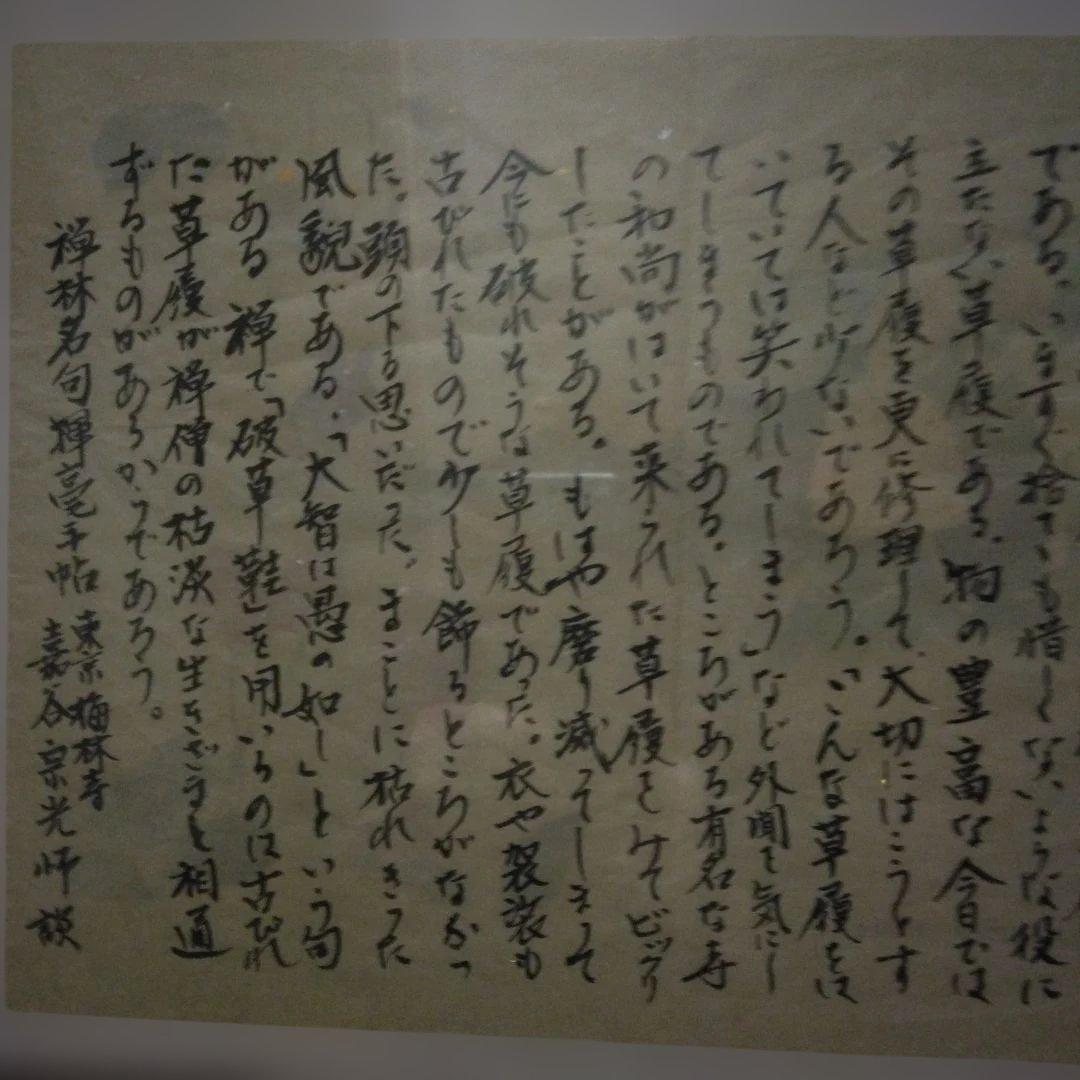 である、いますぐ捨てゝも惜しくないような役に
立たない草履である。物の豊富な今日では
その草履を更に修理して、大切にはこうとす
る人など少ないであろう。「こんな草履をは
いていては笑われてしまう」など外聞を気にし
てしまうものである。ところがある有名な寺
の和尚がはいて来られた草履をみてビックリ
したことがある。もはや磨り減ってしまって
今にも破れそうな草履であった。衣や袈裟も
古びれたもので少しも飾るところがなかっ
た。頭の下る思いだった。まことに枯れきった
風貌である。「大智は愚の如し」という句
がある 禅で「破草鞋」を用いるのは古びれ
た草履が禅僧の枯淡な生きざまと相通
ずるものがあるからであろう。
禅林名句輝毫手帖 東京梅林寺
嘉谷宗光師談